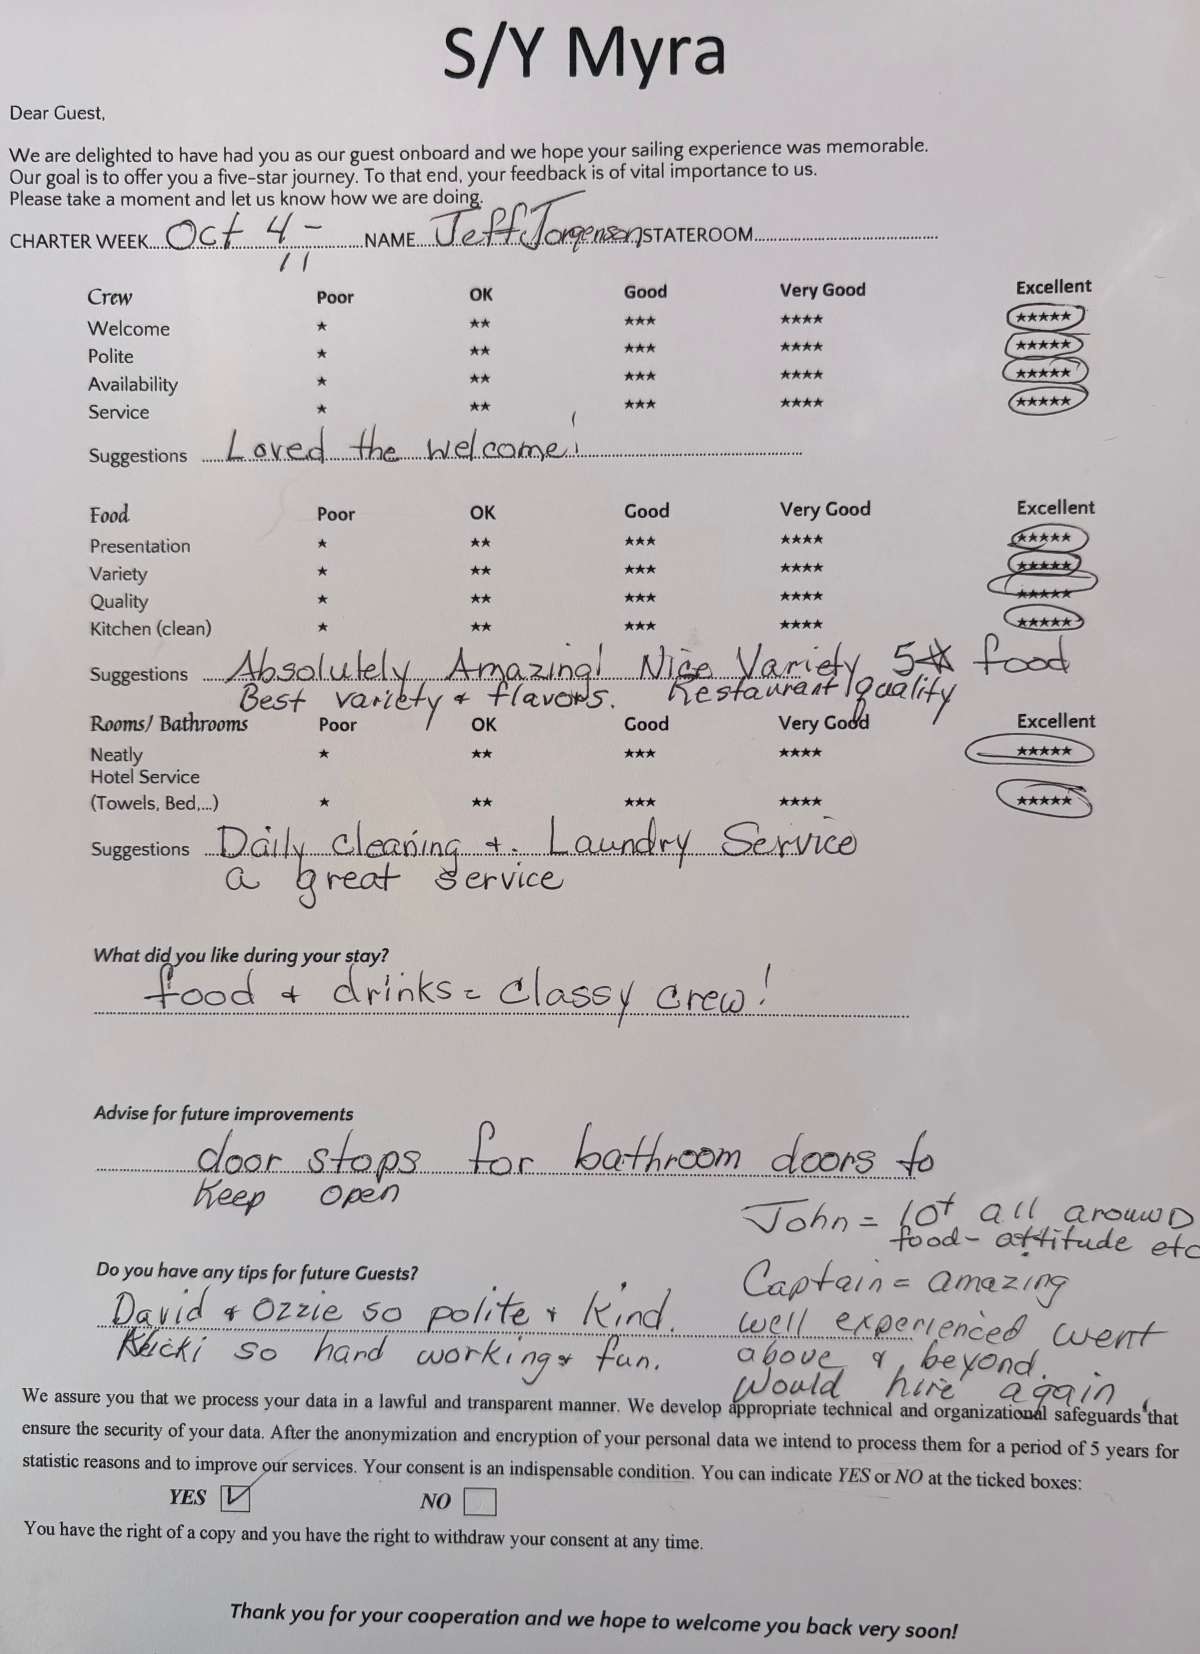 S/Y Myra
Dear Guest,
We are delighted to have had you as our guest onboard and we hope your sailing experience was memorable.
Our goal is to offer you a five-star journey. To that end, your feedback is of vital importance to us.
Please take a moment and let us know how we are doing.
CHARTER WEEK Oct 4 - 11 NAME Jeff Jorgensen STATEROOM
Crew Poor OK Good Very Good Excellent
Welcome ★ ★★ ★★★ ★★★★ ★★★★★
Polite ★ ★★ ★★★ ★★★★ ★★★★★
Availability ★ ★★ ★★★ ★★★★ ★★★★★
Service ★ ★★ ★★★ ★★★★ ★★★★★
Suggestions Loved the welcome!
Food Poor OK Good Very Good Excellent
Presentation ★ ★★ ★★★ ★★★★ ★★★★★
Variety ★ ★★ ★★★ ★★★★ ★★★★★
Quality ★ ★★ ★★★ ★★★★ ★★★★★
Kitchen (clean) ★ ★★ ★★★ ★★★★ ★★★★★
Suggestions Absolutely Amazing! Nice Variety 5★ food
Best variety & flavors. Restaurant quality
Rooms/ Bathrooms Poor OK Good Very Good Excellent
Neatly ★ ★★ ★★★ ★★★★ ★★★★★
Hotel Service
(Towels, Bed,...) ★ ★★ ★★★ ★★★★ ★★★★★
Suggestions Daily cleaning & Laundry Service
a great service
What did you like during your stay?
food & drinks = classy crew!
Advise for future improvements
door stops for bathroom doors to
keep open
John = 10+ all around
food - attitude etc
Do you have any tips for future Guests?
Captain = amazing
David & Ozzie so polite & kind.
well experienced went
Kicki so hard working & fun.
above & beyond.
Would hire again.
We assure you that we process your data in a lawful and transparent manner. We develop appropriate technical and organizational safeguards that
ensure the security of your data. After the anonymization and encryption of your personal data we intend to process them for a period of 5 years for
statistic reasons and to improve our services. Your consent is an indispensable condition. You can indicate YES or NO at the ticked boxes:
YES ☑ NO ☐
You have the right of a copy and you have the right to withdraw your consent at any time.
Thank you for your cooperation and we hope to welcome you back very soon!